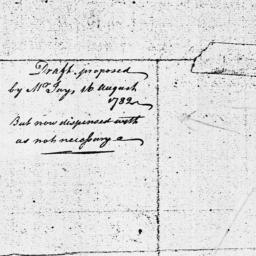 Draft proposed
by Mr Jay, 16 August
1782
But now dispensed with
as not necessary